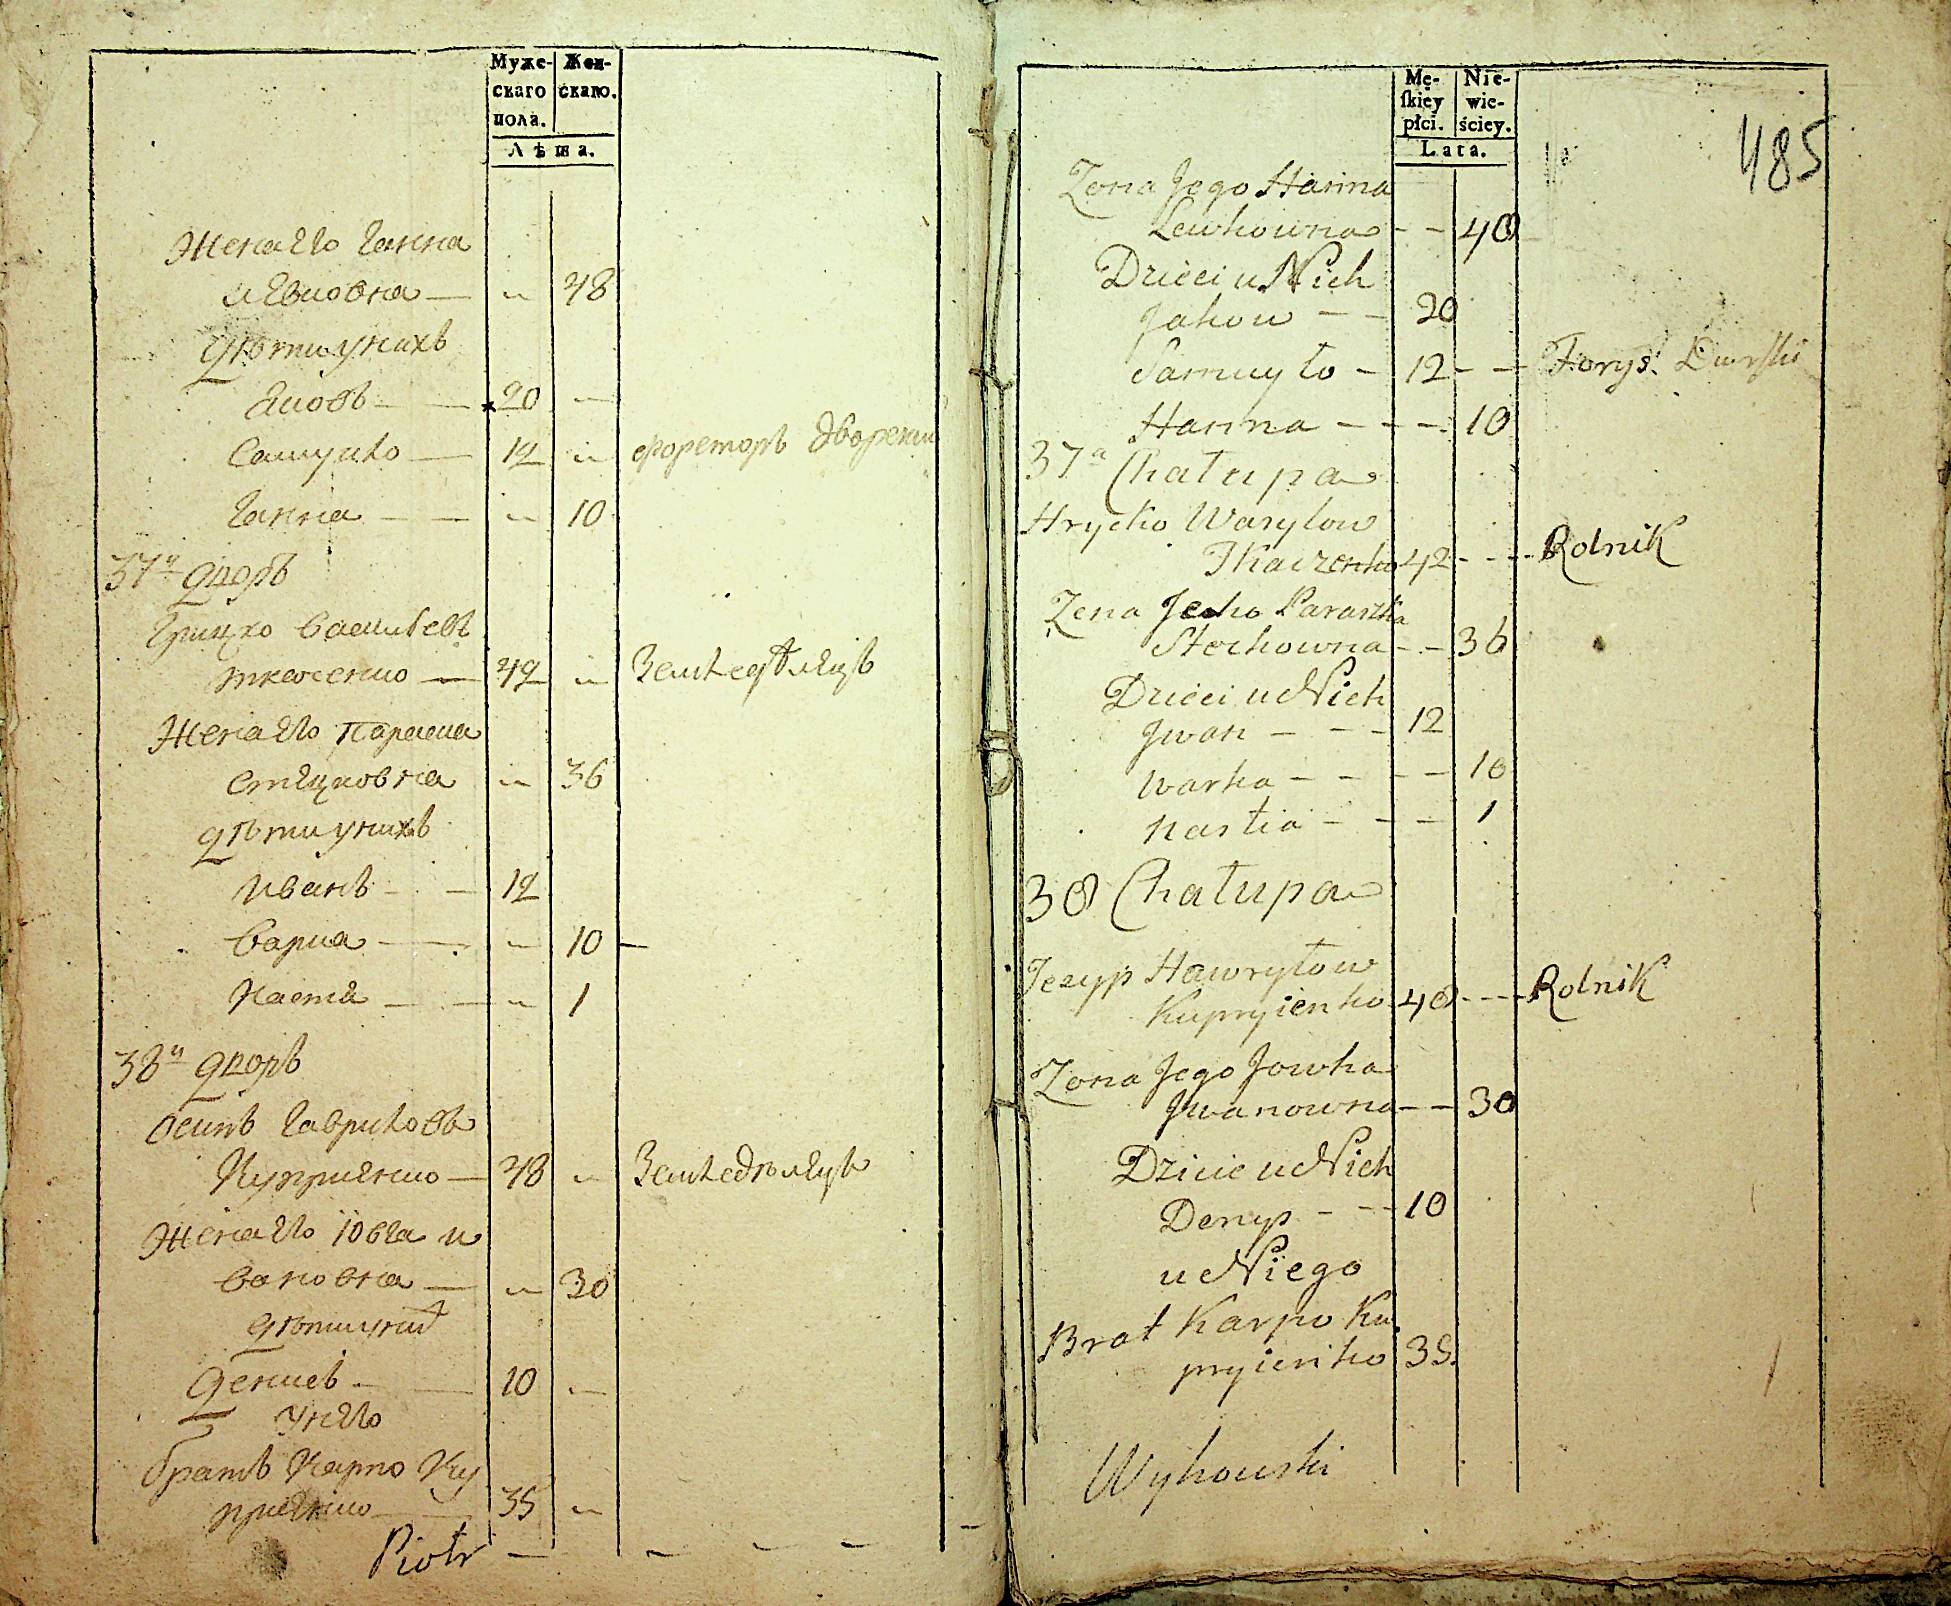 Муже-
скаго
пола.
Жен-
скаго.
Лѣта.
Жена Его Ганна
Левковна — „ 48
Дѣти у нихъ
Яковъ — — 20 —
Самуило — 12 „ форейторъ дворскии
Ганна — — „ 10
37й дворъ
Грицко Васильевъ
Ткаченко — 42 „ Земледѣлецъ
Жена Его Параска
Стецковна „ 36
дѣти у нихъ
Иванъ — — 12
Варка — — „ 10 —
Настя — — „ 1
38й дворъ
Осипъ Гавриловъ
Куприенко — 48 „ Земледѣлецъ
Жена Его Ювга И
вановна — „ 30
дѣти у них
Денисъ — — 10 „
у него
братъ Карпо Ку
приенко — 35 „
Piotr — — — —
Mę-
ſkiey
płci.
Nie-
wie-
ściey.
Lata.
485
Zona Jego Hanna
Lewkowna - - 48
Dzieci u Nich
Jakow - - 20
Samuyło - 12 - - Foryś. Dworski
Hanna - - - 10
37a Chałupa
Hrycko Wasylow
Tkaczenko 42 - - - Rolnik
Zena Jecho Paraszka
Stechowna - - 36
Dzieci u Nich
Jwan - - - 12
Warka - - - - 10
Nastia - - - 1
38 Chałupa
Jezyp Hawryłow
Kupryienko 48 - - - Rolnik
Zona Jego Jowha
Jwanowna - - 30
Dzicie u Nich
Denys - - - 10
u Niego
Brat Karpo Ku
pryienko 35.
Wyhowski